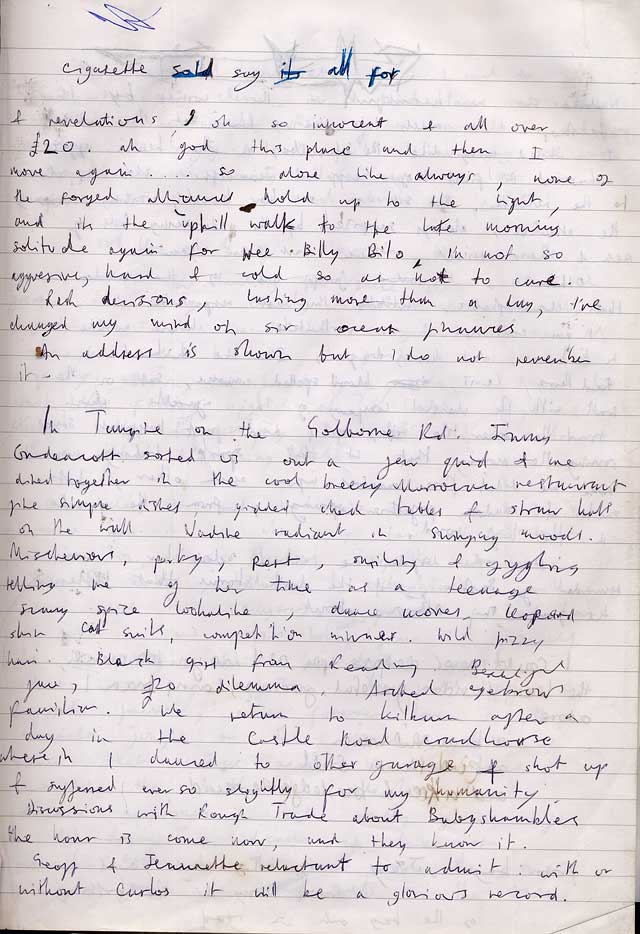 cigarette sold say it all for
& revelations, oh so innocent & all over
£20. ah god this place and then I
move again .... so alone like always, none of
the forged alliances hold up to the light,
and in the uphill walk to the late morning
solitude again for Wee Billy Bilo, I'm not so
aggressive, hard & cold so as not to care.
Rash decisions, lasting more than a day, I've
changed my mind oh sir
An address is shown but I do not remember
it -
In on the Golborne Rd. Jimmy
sorted us out a few quid & we
dined together in the cool breezy Morrocan restaurant
simple dishes tables & straw hats
on the wall radiant in swinging moods.
Mischevious, perky, pert, smiling & giggling
telling me of her time as a teenage
spice lookalike, dance moves, leopard
skin cat suits, competition winner. Wild
hair. Black girl from Reading, Beautiful
£20 dilemma. Arched eyebrows
familiar. We return to kilburn after a
day in the Castle Road crackhouse
where in I danced to other garage & shot up
& suffered ever so slightly for my humanity.
Discussions with Rough Trade about Babyshambles
the hour is come now, and they know it.
Geoff & Jeannette reluctant to admit: with or
without Carlos it will be a glorious record.